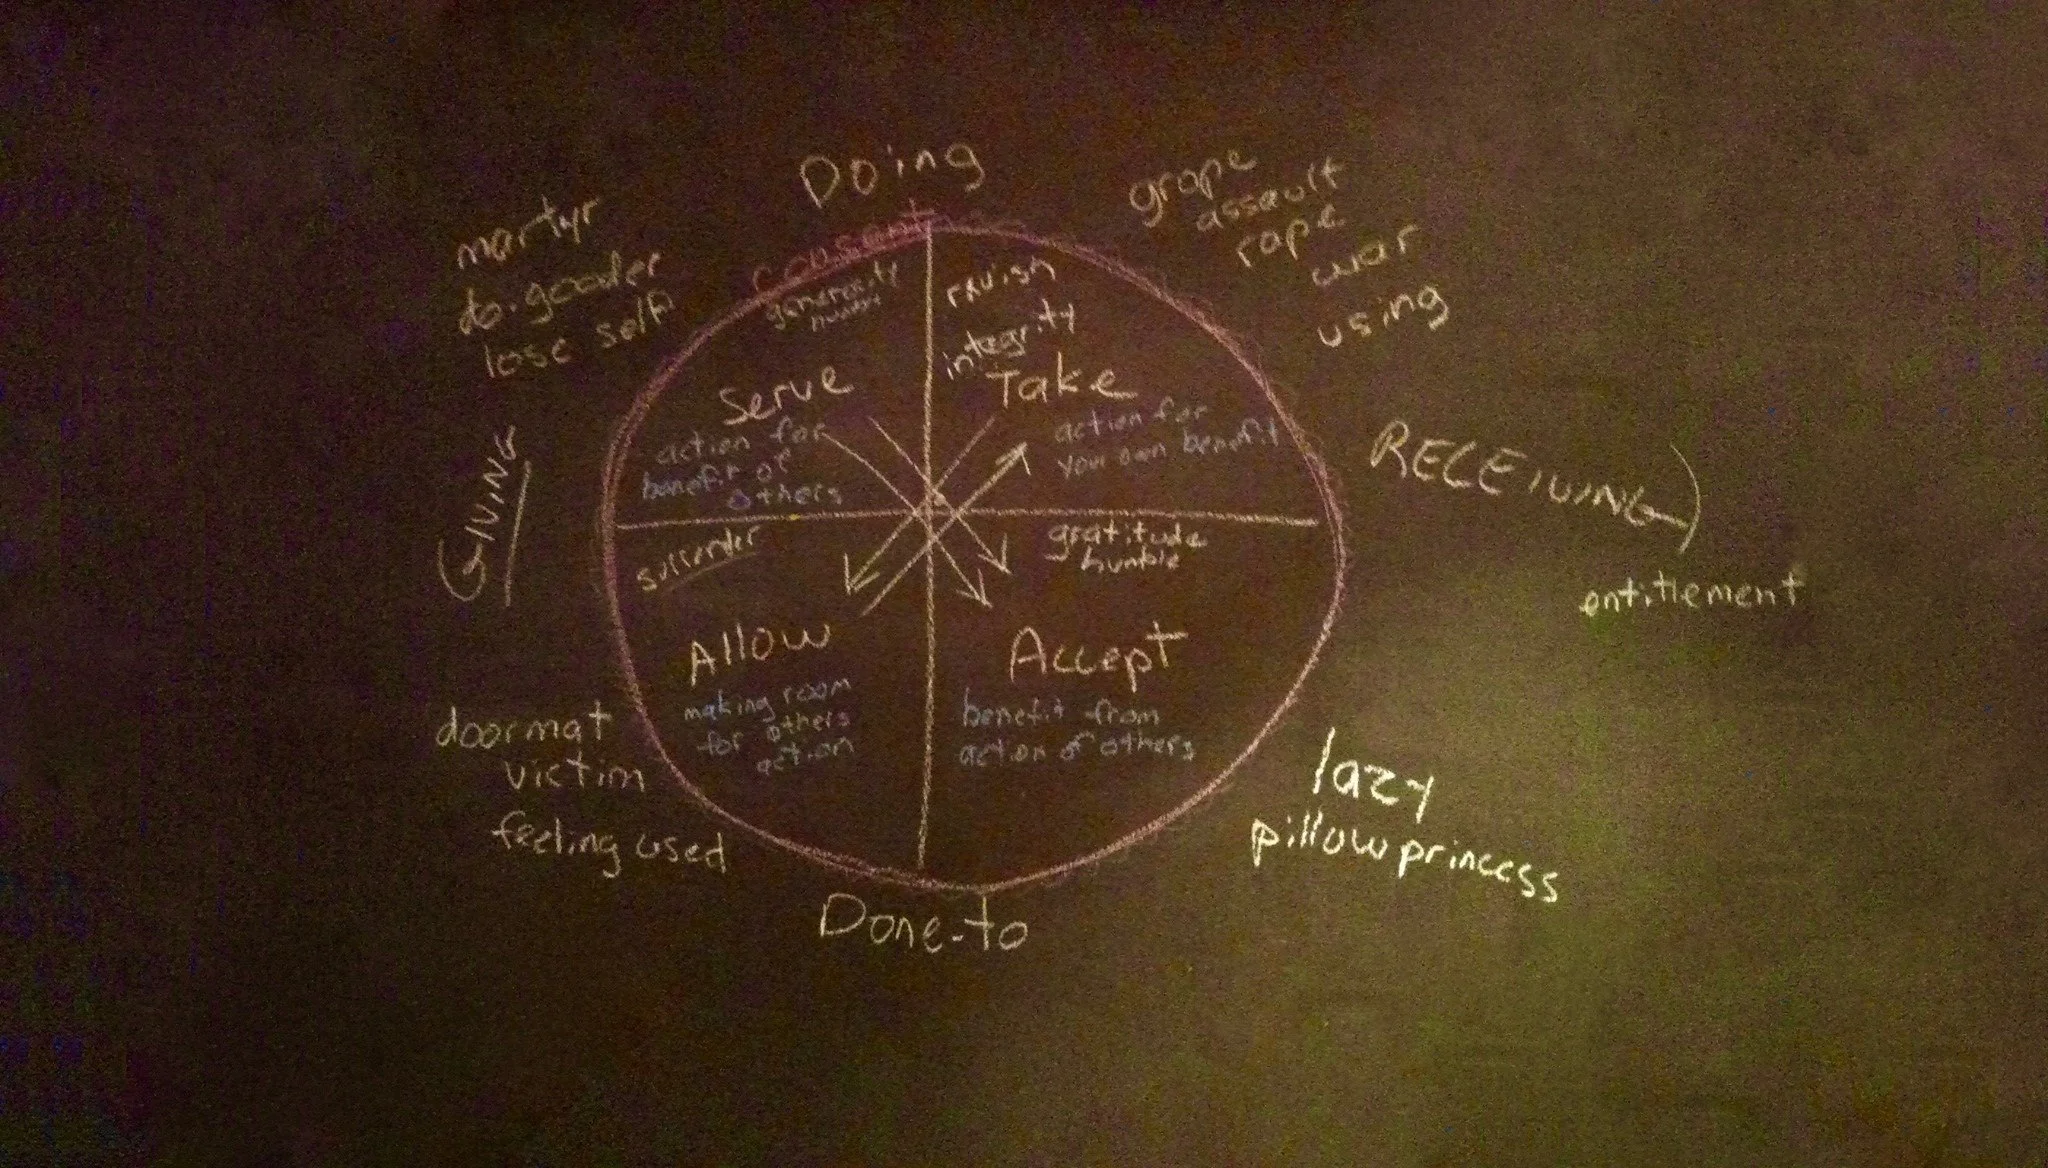 Doing
grope
assault
rape
war
using
martyr
do-gooder
lose self
consent
generosity
ravish
integrity
Serve
action for
benefit of
others
Take
action for
your own benefit
GIVING
RECEIVING
surrender
gratitude
humble
entitlement
Allow
making room
for others
action
Accept
benefit from
action of others
doormat
victim
feeling used
lazy
pillow princess
Done-to